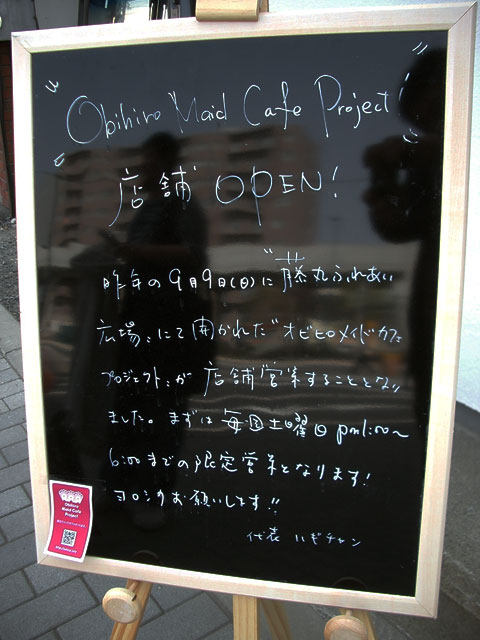 "Obihiro Maid Cafe Project"
店舗 OPEN!
昨年の9月9日(日)に"藤丸ふれあい
広場"にて開かれた"オビヒロメイドカフェ
プロジェクト"が店舗営業することとなり
ました。まずは毎週土曜日pm1:00〜
6:00までの限定営業となります!
ヨロシクお願いします!!
代表 ハギチャン
Obihiro
Maid Cafe
Project